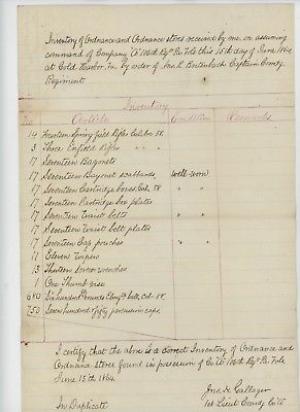 Inventory of Ordnance and Ordnance stores received by me on assuming
command of Company "G" 106th Regt Pa. Vols this 15th day of June 1864
at Cold Harbor, Va by order of Breitenbach Captain Comdg
Regiment.
Inventory
No. Article Condition Remarks
14 Fourteen Springfield Rifles Calibre 58.
3 Three Enfield Rifles " "
17 Seventeen Bayonets
17 Seventeen Bayonet scabbards, well-worn
17 Seventeen Cartridge boxes Cal. 58 " "
17 Seventeen Cartridge box plates
17 Seventeen Waist belts " "
17 Seventeen Waist belt plates
17 Seventeen Cap pouches " "
11 Eleven Wipers
13 Thirteen Screw wrenches
1 One Thumb vise
680 Six hundred rounds Cal. 58
750 Seven hundred & fifty percussion caps
I certify that the above is a correct Inventory of Ordnance and
Ordnance Stores found in possession of Co. "G" 106th Regt Pa. Vols
June 15th 1864.
Jno. A. Gallager
In Duplicate 1st Lieut Comdg Co. "G"